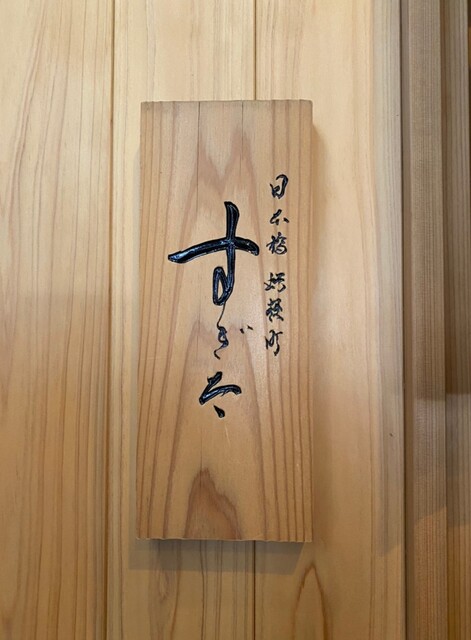 日本橋蛎殻町
すぎた